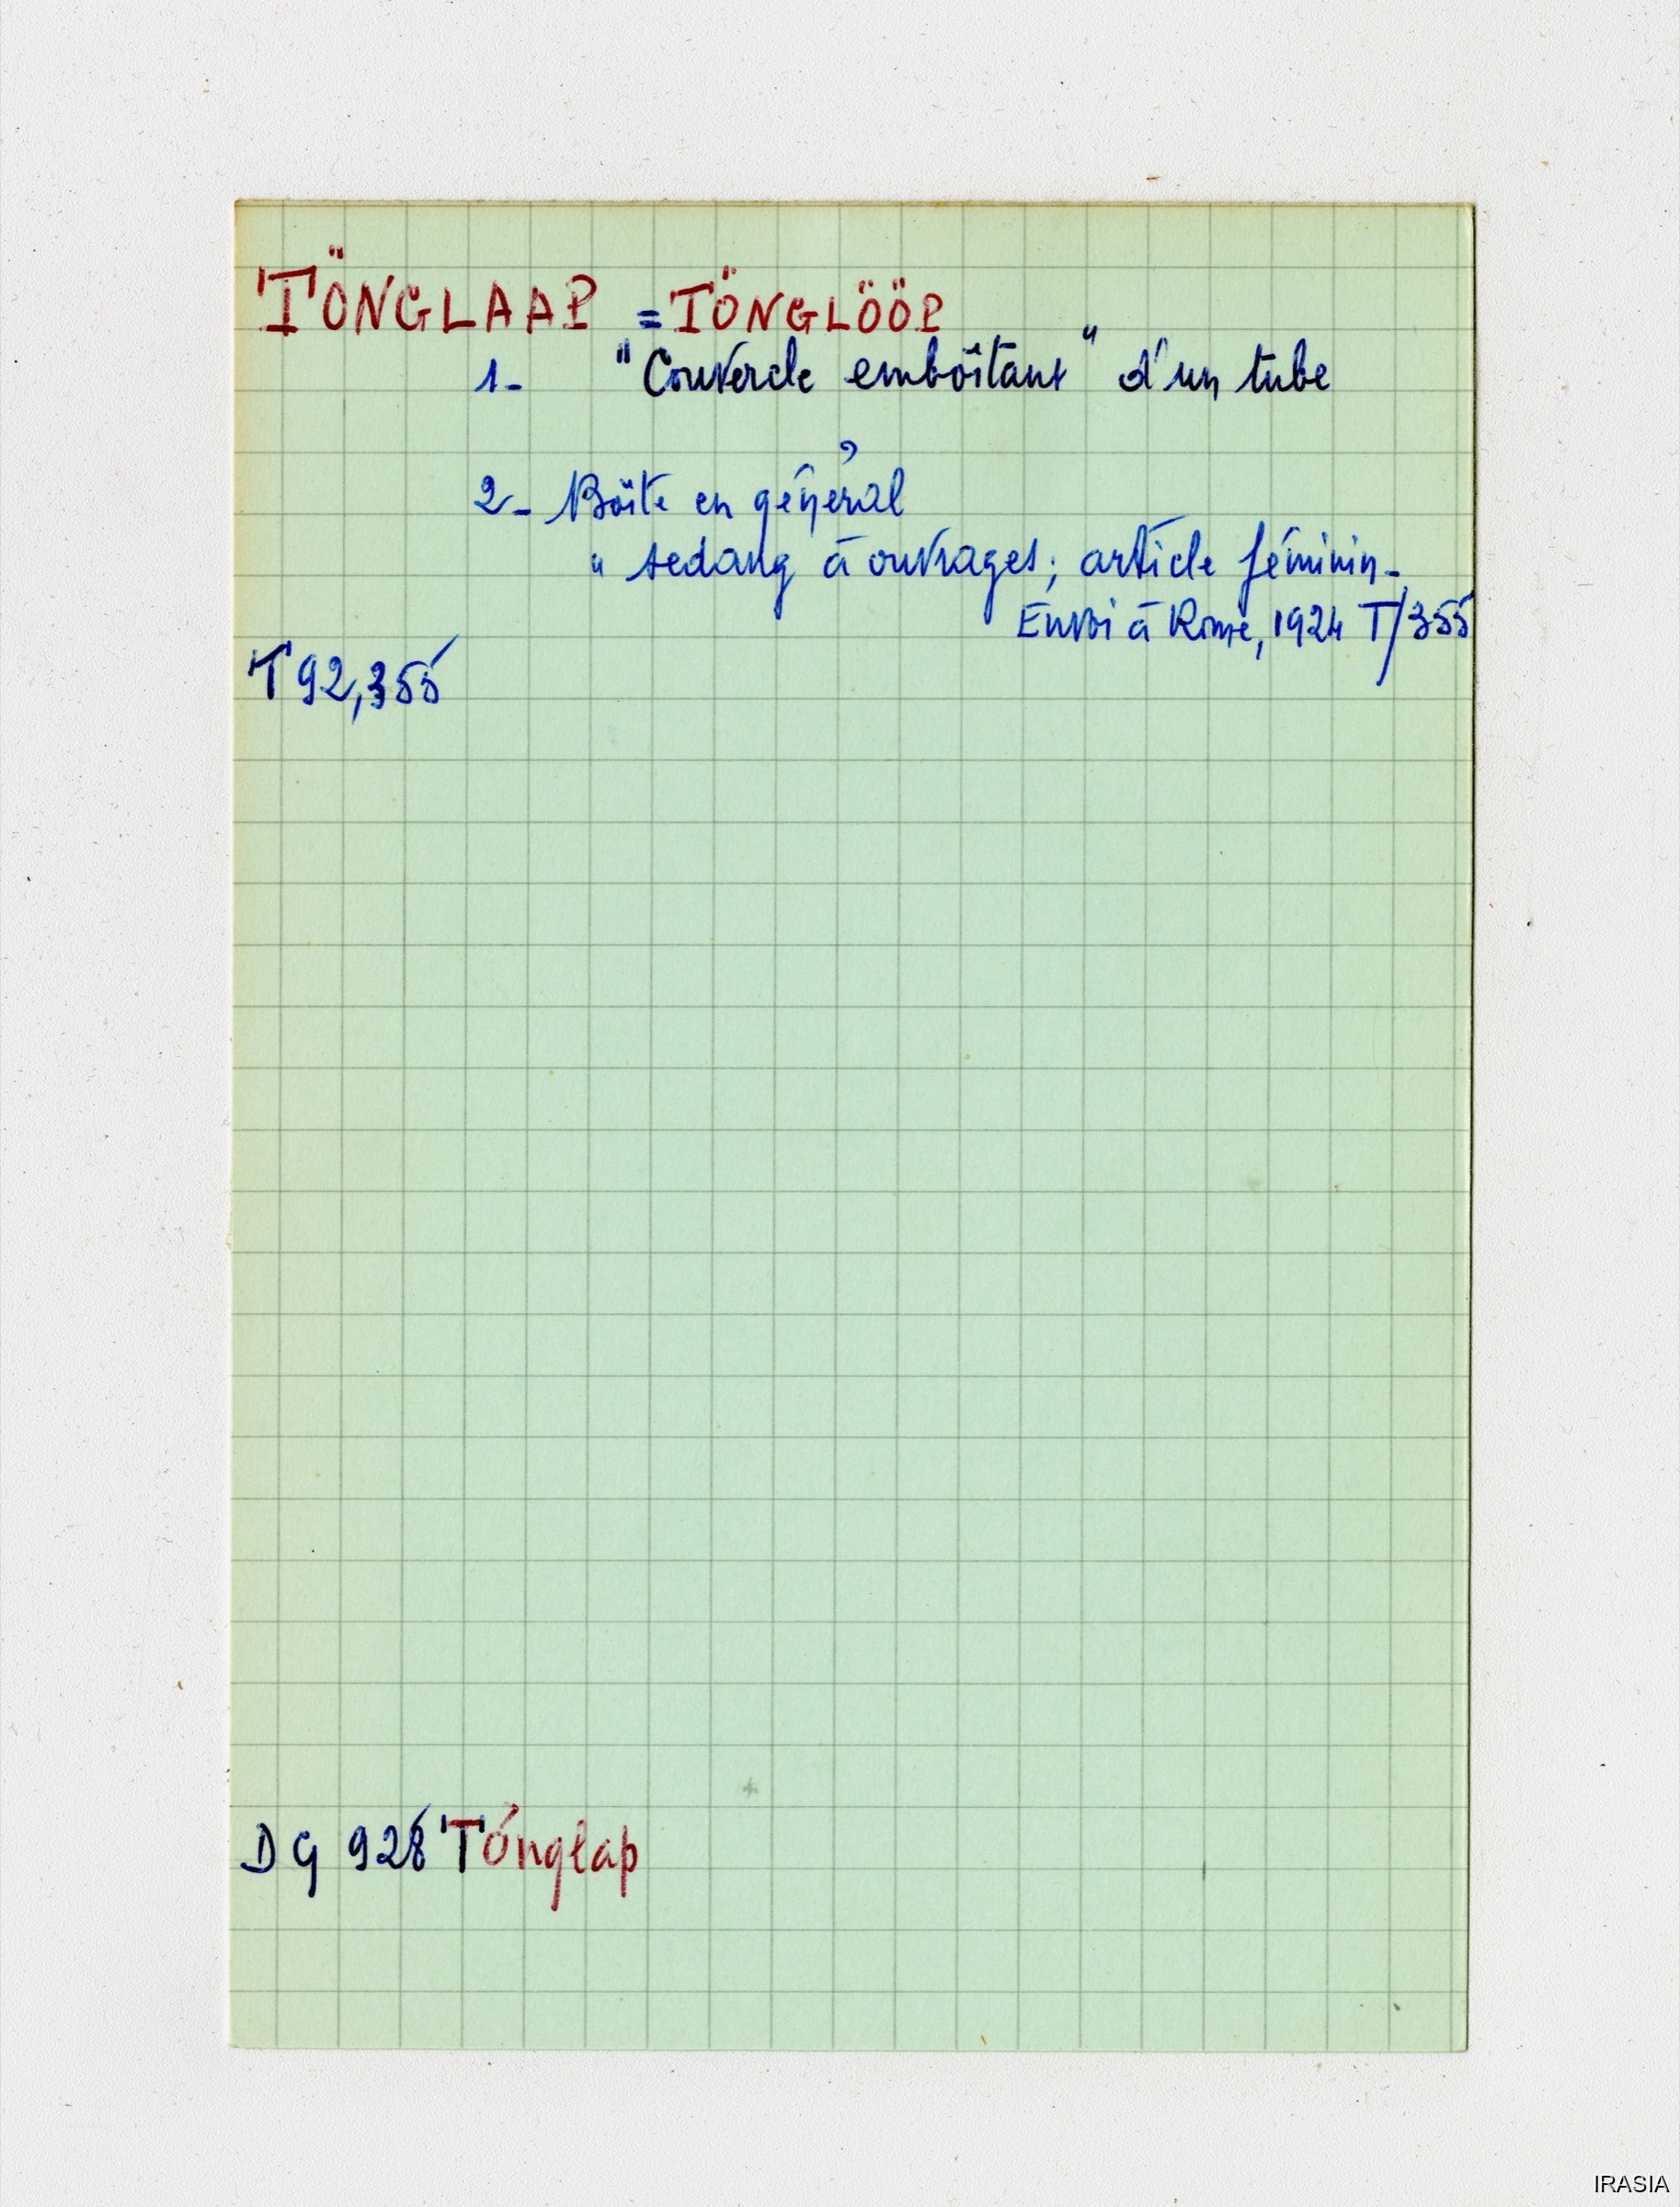 TÖNGLAAP = TÖNGLÖÖP
1- "Couvercle emboîtant" d'un tube
2- Boîte en général
" sedang à ouvrages; article féminin-
Envoi à Rome, 1924 T/355
T 92,355
DG 928 Tónglap
IRASIA